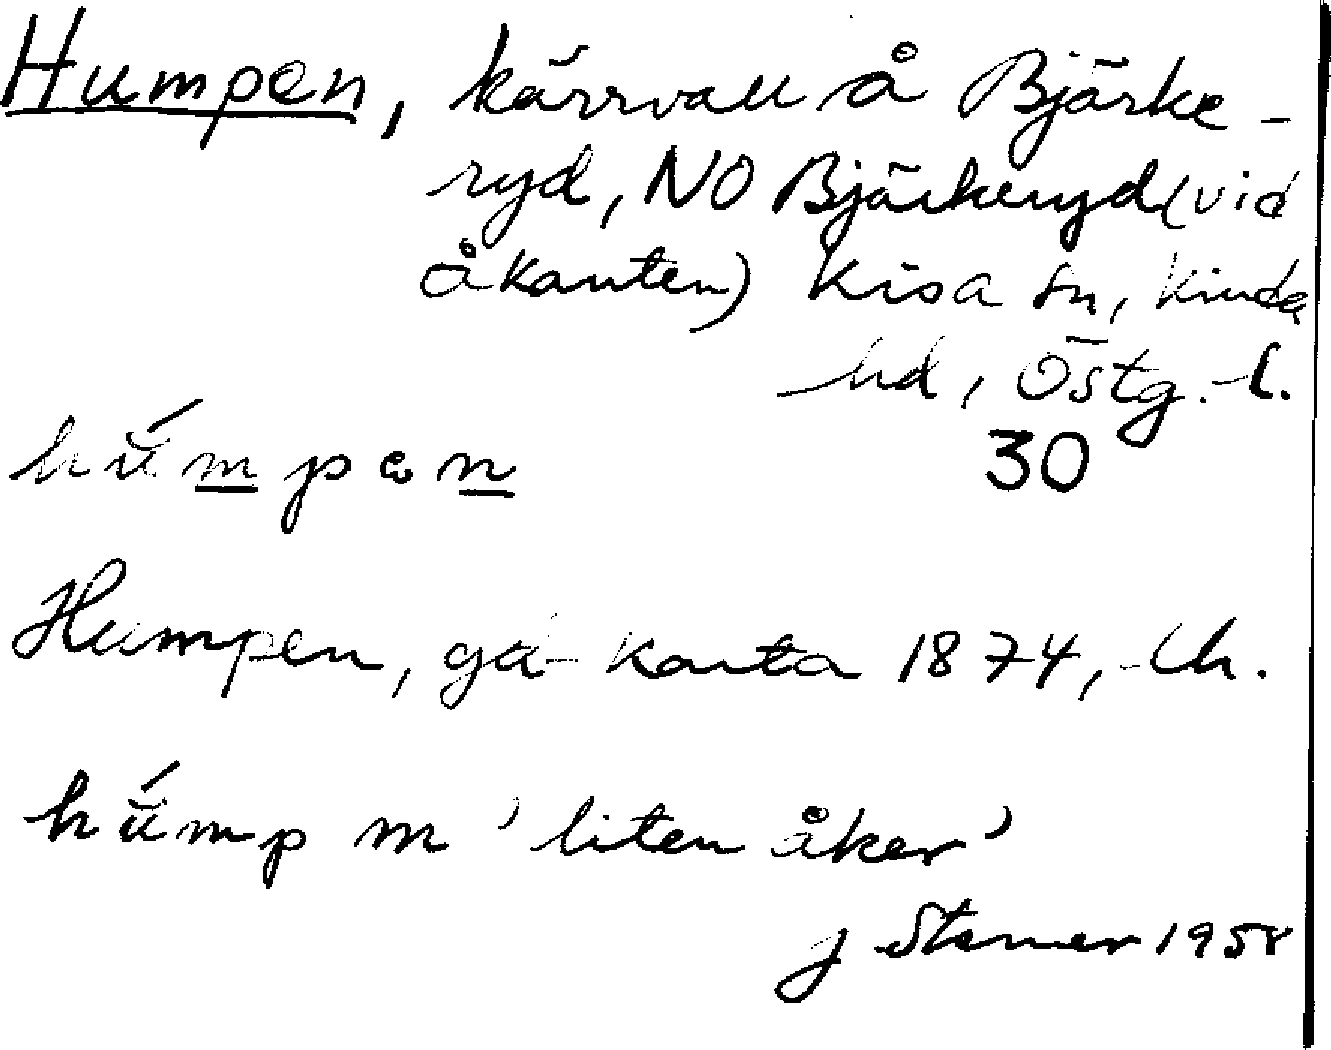 Humpen, kärrvall å Bjärke-
ryd, NO Bjärkeryd (vid
åkanten) Kisa sn, Kinda
hd, Östg. l.
30
hŭ́mpɘn
Humpen, gä-karta 1874,
hŭ́mp m 'liten åker'
J 1958